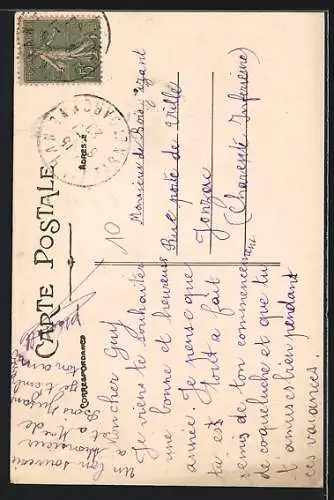 CARTE POSTALE
CORRESPONDANCE
ADRESSE
Monsieur de Bois Jugant
Rue porte de ville
Jonzac
(Charente Inférieure)
10
Mon cher Guy
Je viens te souhaiter
une bonne et heureuse
année. Je pense que
tu es tout a fait
remis de ton commencement
de coqueluche et que tu
t'amuses bien pendant
ces vacances.
Un bon souvenir
a Monsieur
et a Mme de
Bois Jugant
ton ami